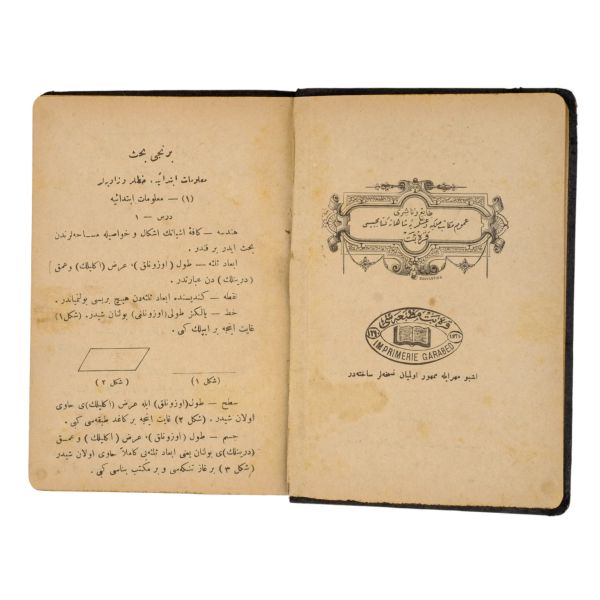 طابع و ناشری
عموم مکاتب عسکریهٔ شاهانه کتابجیسی
قره بت
IMPRIMERIE GARABED
اشبو مهرایله ممهور اولمیان نسخه‌لر ساخته‌در
برنجی بحث
معلومات ابتدائیه ، خطلر و زاویه‌لر
(۱) — معلومات ابتدائیه
درس — ۱
هندسه — کافهٔ اشیانك اشکال و خواصیله مساحه‌لرندن
بحث ایدر بر فندر .
ابعاد ثلثه — طول ( اوزونلق ) ، عرض ( اکلیلك ) و عمق
( درینلك ) دن عبارتدر .
نقطه — کندیسنده ابعاد ثلثه‌دن هیچ بریسی بولنمیاندر .
خط — یالکز طولی (اوزونلغی) بولنان شیدر . (شکل ۱)
غایت اینجه بر ایپلك کبی .
(شکل ۱)
(شکل ۲)
سطح — طول (اوزونلق) ایله عرض (اکلیلك)ی حاوی
اولان شیدر . (شکل ۲) غایت اینجه بر کاغد طبقه‌سی کبی .
جسم — طول ( اوزونلق ) ، عرض ( اکلیلك ) و عمق
(درینلك)ی بولنان یعنی ابعاد ثلثه‌یی کاملاً حاوی اولان شیدر
(شکل ۳) بر غاز تنکه‌سی و بر مکتب بناسی کبی .